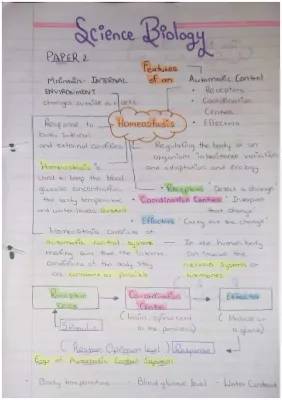 Science Biology
PAPER 2
Features
of an
Maintain INTERNAL
ENVIRONMENT
changes outside
Automatic Control
• Receptors
• Coordination
Centres
• Effectors
Homeostasis
Response to
both internal
and external conditions
Regulating the body of an
organism
and adaptation and
Homeostasis is
used to keep the blood
glucose concentration
the body temperature
and water levels constant
• Receptors Detect a change
• Coordination Centres 'Interpret
that change'
• Effectors 'Carry out the change'
Homeostasis consists of
automatic control systems
making sure that the internal
conditions of the body stay
as constant as possible
In the human body
nervous system or
hormones
Receptor
Cells
Coordination
Centre
Effector
(brain, spinal cord
or the pancreas)
(Muscle or
a gland)
Stimulus
Response
Eggs of Automatic Control Systems
Body temperature - Blood glucose level - Water Content